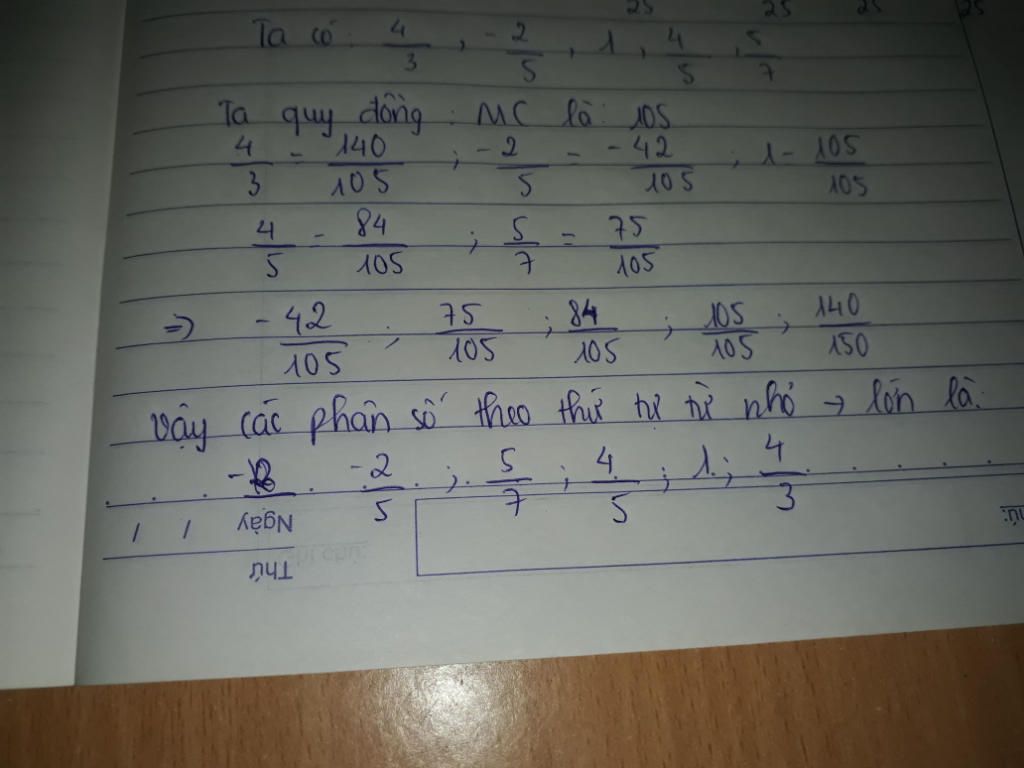 25 25 25 25
Ta có: 4/3 ; -2/5 , 1 , 4/5 , 5/7
Ta quy đồng : MC là: 105
4/3 = 140/105 ; -2/5 = -42/105 ; 1 = 105/105
4/5 = 84/105 ; 5/7 = 75/105
=> -42/105 ; 75/105 ; 84/105 ; 105/105 ; 140/150
Vậy các phân số theo thứ tự từ nhỏ → lớn là:
-2/5 ; 5/7 ; 4/5 ; 1 ; 4/3
Ngày / /
Thứ